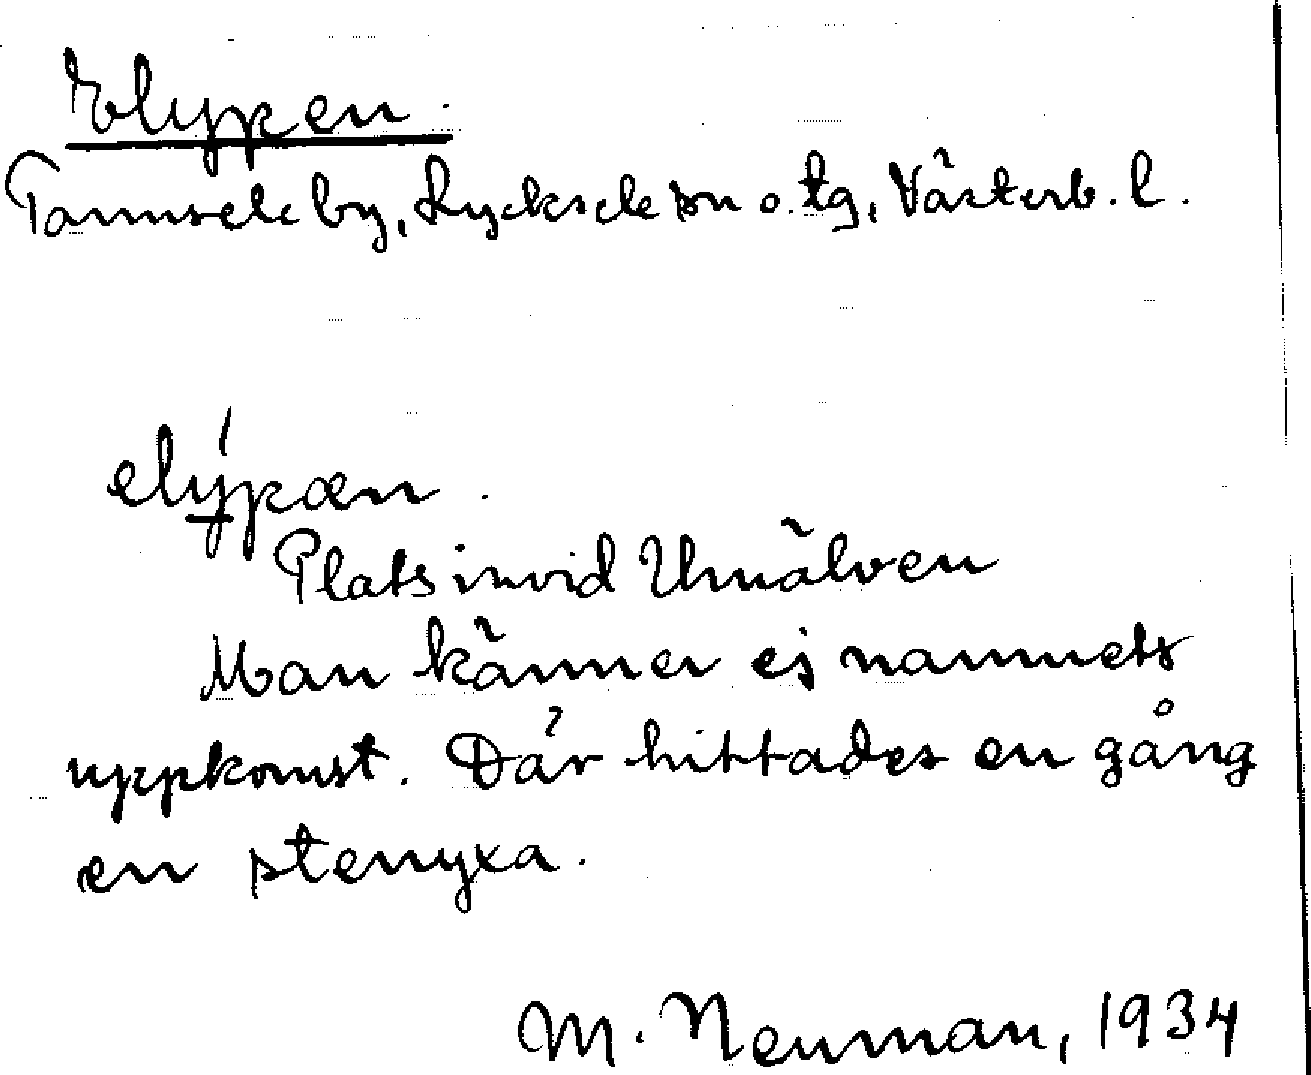 Elypen.
Tannsele by, Lycksele sn o. tg, Västerb. l.
elýpæn.
Plats invid Umälven
Man känner ej namnets
uppkomst. Där hittades en gång
en stenyxa.
M. Neuman, 1934